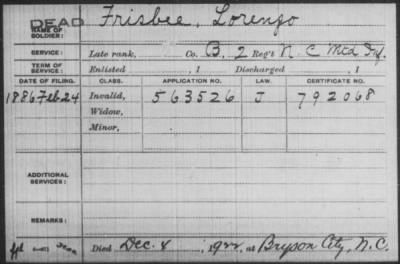 DEAD Frisbee, Lorenzo
NAME OF SOLDIER:
SERVICE: Late rank, Co. B, 2 Reg't N C Mtd Inf.
TERM OF SERVICE: Enlisted , 1 Discharged , 1
DATE OF FILING. CLASS. APPLICATION NO. LAW. CERTIFICATE NO.
1886 Feb 24 Invalid, 563526 J 792068
Widow,
Minor,
ADDITIONAL SERVICES:
REMARKS:
Died Dec. 8, 1922, at Bryson City, N.C.